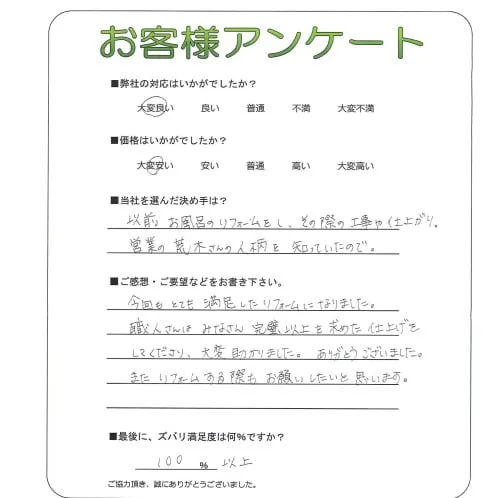 お客様アンケート
■弊社の対応はいかがでしたか？
大変良い 良い 普通 不満 大変不満
■価格はいかがでしたか？
大変安い 安い 普通 高い 大変高い
■当社を選んだ決め手は？
以前、お風呂のリフォームをし、その際の工事や仕上がり、
営業の荒木さんの人柄を知っていたので。
■ご感想・ご要望などをお書き下さい。
今回もとても満足したリフォームになりました。
職人さんはみなさん完璧以上を求めた仕上げを
してくださり、大変助かりました。ありがとうございました。
またリフォームする際もお願いしたいと思います。
■最後に、ズバリ満足度は何%ですか？
100 % 以上
ご協力頂き、誠にありがとうございました。